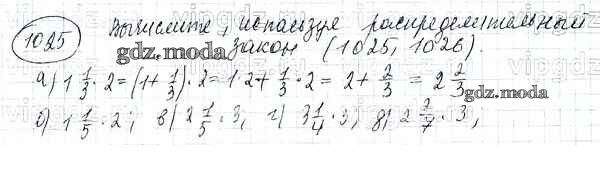 1025 Вычислите, используя распределительный
закон (1025, 1026).
gdz.moda
а) 1 1/3 · 2 = (1 + 1/3) · 2 = 1 · 2 + 1/3 · 2 = 2 + 2/3 = 2 2/3
gdz.moda
б) 1 1/5 · 2; в) 2 1/5 · 3, г) 3 1/4 · 3, д) 2 2/7 · 3;